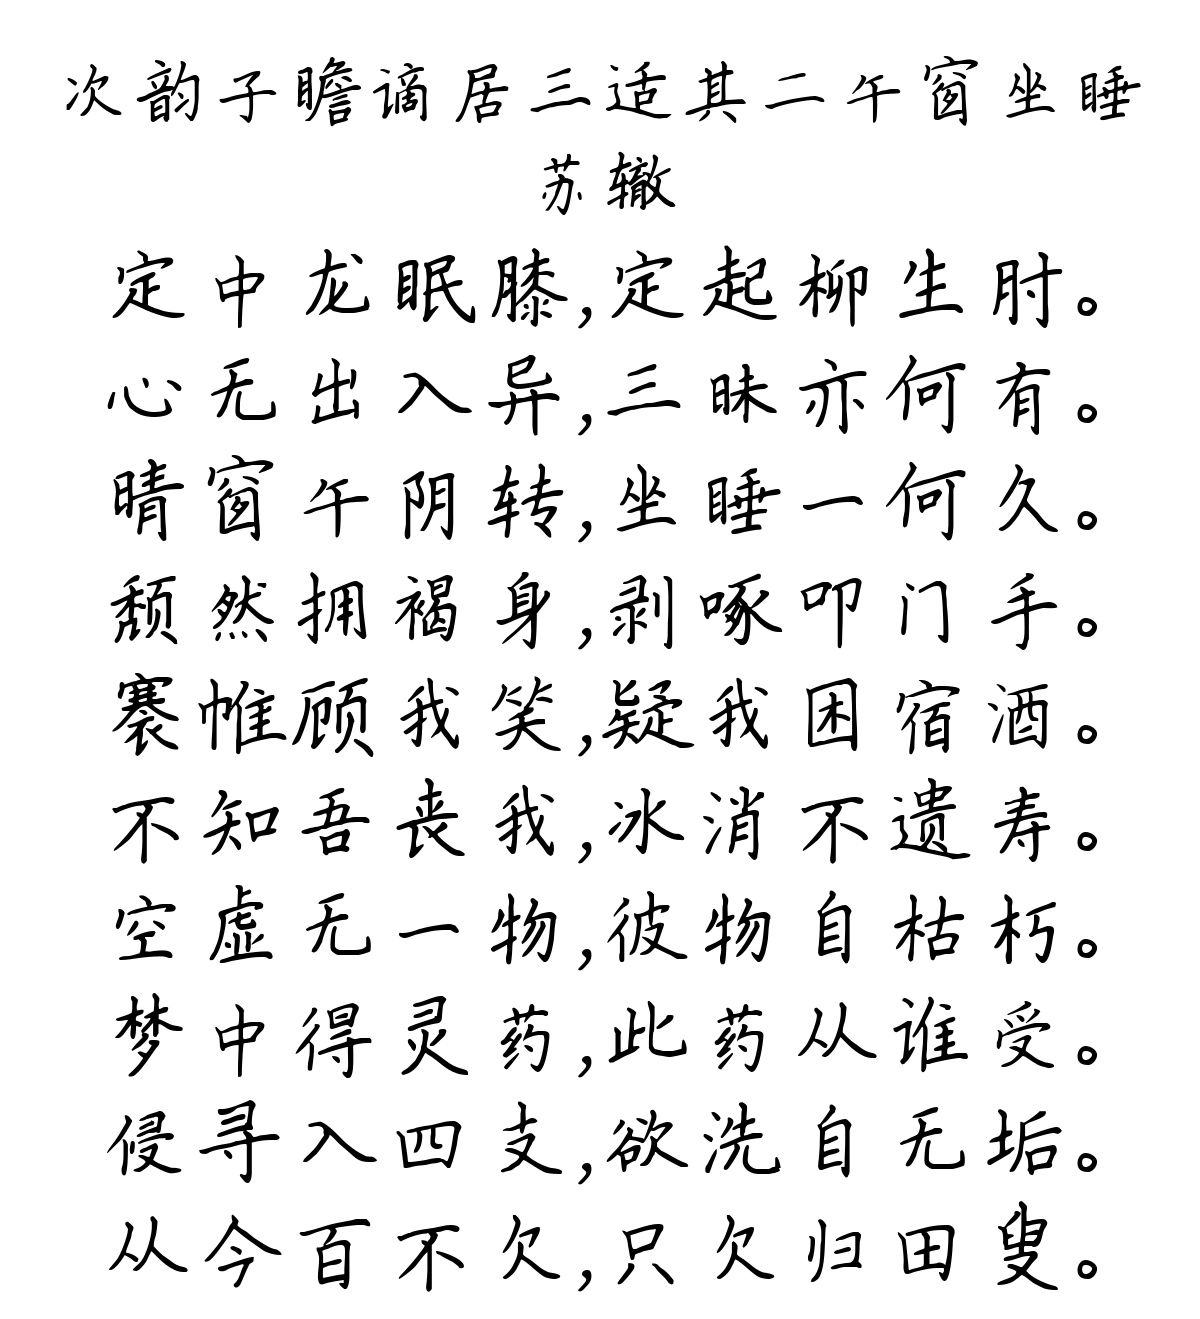 次韵子瞻谪居三适其二午窗坐睡
苏辙
定中龙眠膝,定起柳生肘。
心无出入异,三昧亦何有。
晴窗午阴转,坐睡一何久。
颓然拥褐身,剥啄叩门手。
褰帷顾我笑,疑我困宿酒。
不知吾丧我,冰消不遗寿。
空虚无一物,彼物自枯朽。
梦中得灵药,此药从谁受。
侵寻入四支,欲洗自无垢。
从今百不欠,只欠归田叟。